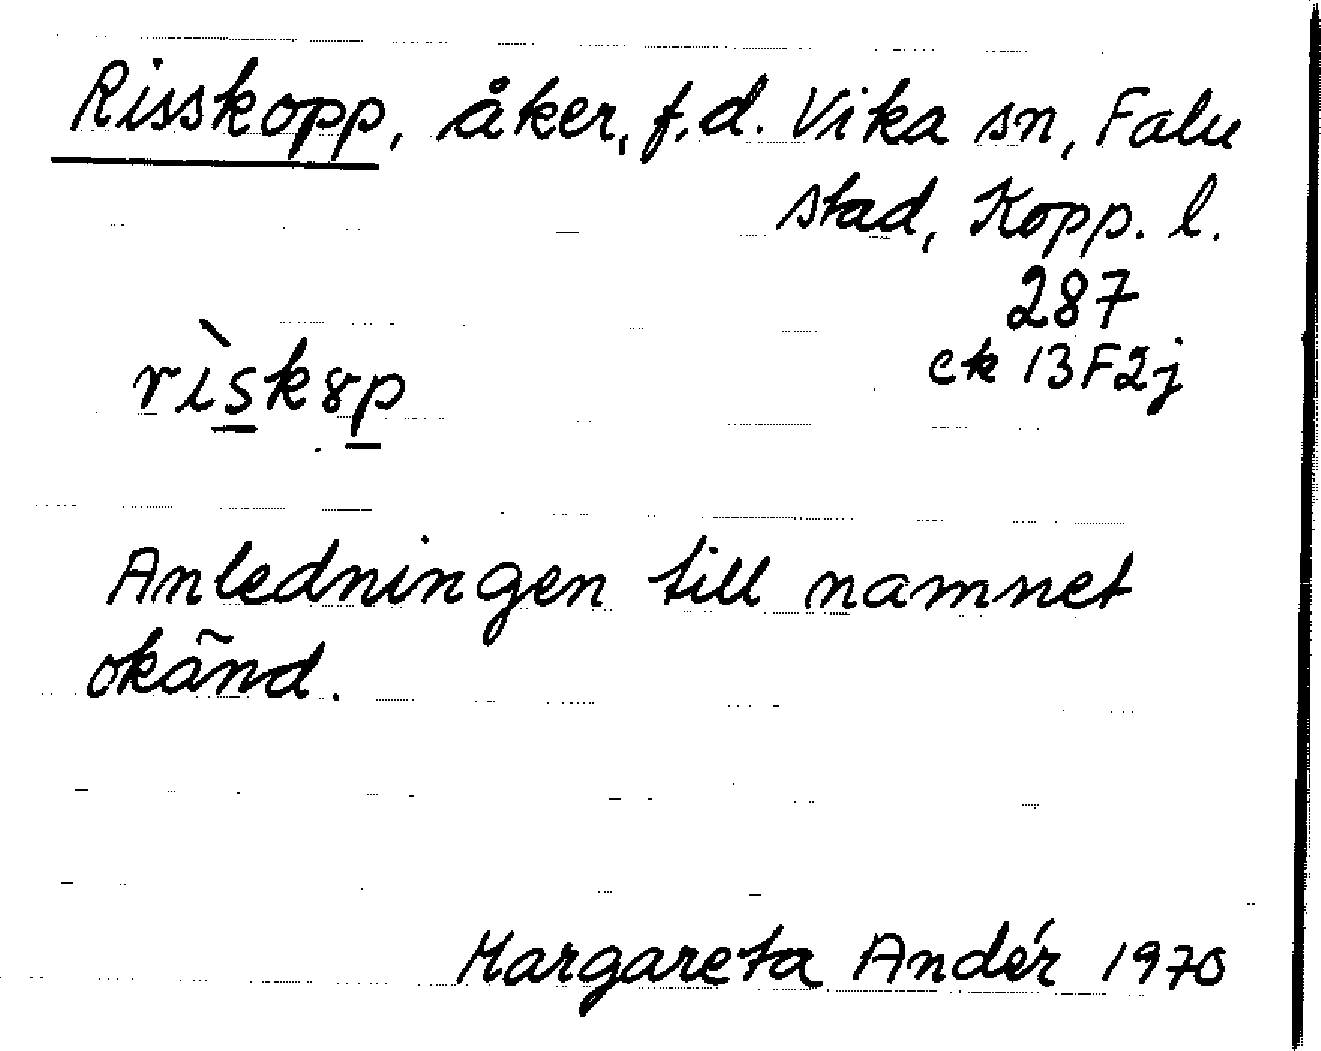 Risskopp, åker, f.d. Vika sn, Falu
stad, Kopp. l.
287
ek 13F2j
rìskȣp
Anledningen till namnet
okänd.
Margareta Andér 1970